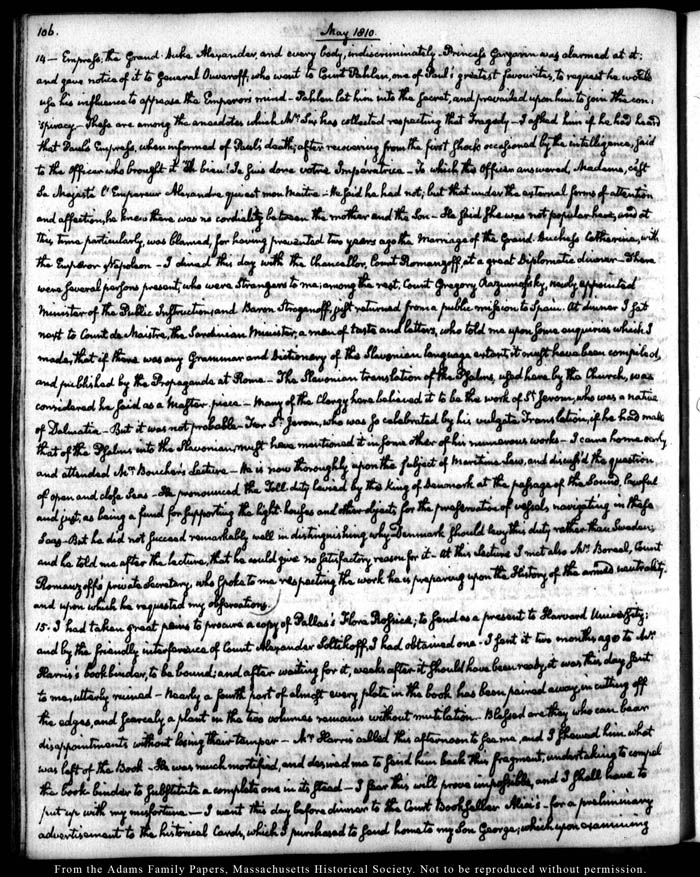 106.
May 1810.
14— Empress, the Grand-Duke Alexander, and every body, indiscriminately. Princess Gargarin was alarmed at it;
and gave notice of it to General Ouvaroff; who went to Count Pahlen, one of Paul's greatest favourites, to request he would
use his influence to appease the Emperors mind — Pahlen let him into the secret, and prevailed upon him to join the con-
-spiracy — These are among the anecdotes which Mr Six has collected respecting that Tragedy — I asked him if he had heard
that Paul's Empress, when informed of Paul's death, after recovering from the first shock occasioned by the intelligence, said
to the Officer who brought it "Eh bien! Je suis donc votre Imperatrice — To which the Officer answered, Madame, c'est
Sa Majesté l'Empereur Alexandre qui est mon Maitre — He said he had not; but that under the external forms of attention
and affection, he knew there was no cordiality between the mother and the Son — He said She was not popular here, and at
this time particularly, was blamed, for having prevented two years ago the Marriage of the Grand-Duchess Catherine, with
the Emperor Napoleon — I dined this day with the Chancellor, Count Romanzoff, at a great Diplomatic dinner — There
were several persons present, who were Strangers to me; among the rest, Count Gregory Razumofsky, newly appointed
Minister of the Public Instruction; and Baron Stroganoff, just returned from a public mission to Spain. At dinner I sat
next to Count de Maistre, the Sardinian Minister; a man of taste and letters, who told me upon some enquiries which I
made, that if there was any Grammar and Dictionary of the Slavonian language extant, it must have been compiled,
and published by the Propaganda at Rome — The Slavonian translation of the Psalms, used here by the Church, was
considered he said as a Master-piece — Many of the Clergy here believed it to be the work of St Jerom, who was a native
of Dalmatia — But it was not probable — For St Jerom, who was so celebrated by his vulgate Translation, if he had made
that of the Psalms into the Slavonian, must have mentioned it in some other of his numerous works — I came home early,
and attended Mr Boucher's Lecture — He is now thoroughly upon the subject of Maritime Law, and discuss'd the question
of open and close Seas — He pronounced the Toll-duty levied by the King of Denmark at the passage of the Sound, lawful
and just, as being a fund for supporting the light-houses and other objects for the preservation of vessels, navigating in these
Seas — But he did not succeed remarkably well in distinguishing why Denmark should levy this duty rather than Sweden;
and he told me after the lecture, that he could give no satisfactory reason for it — At this lecture I met also Mr Borel, Count
Romanzoff's private Secretary, who spoke to me respecting the work he is preparing upon the History of the armed neutrality.
and upon which he requested my observations.
15. I had taken great pains to procure a copy of Pallas's Flora Rossica; to send as a present to Harvard University;
and by the friendly interference of Count Alexander Soltikoff, I had obtained one. I sent it two months ago to Mr
Harris's bookbinder, to be bound; and after waiting for it, weeks after it should have been ready, it was this day sent
to me, utterly ruined — Nearly a fourth part of almost every plate in the book has been paired away, in cutting off
the edges, and scarcely a plant in the two volumes remains without mutilation. Blessed are they who can bear
disappointments without losing their temper — Mr Harris called this afternoon to see me, and I shewed him what
was left of the Book — He was much mortified, and desired me to send him back this fragment, undertaking to compel
the book-binder to substitute a complete one in its stead — I fear this will prove impossible, and I shall have to
put up with my misfortune — I went this day before dinner to the Court Bookseller Alici's — for a preliminary
advertisement to the historical Cards, which I purchased to send home to my Son George; which upon examining
From the Adams Family Papers, Massachusetts Historical Society. Not to be reproduced without permission.